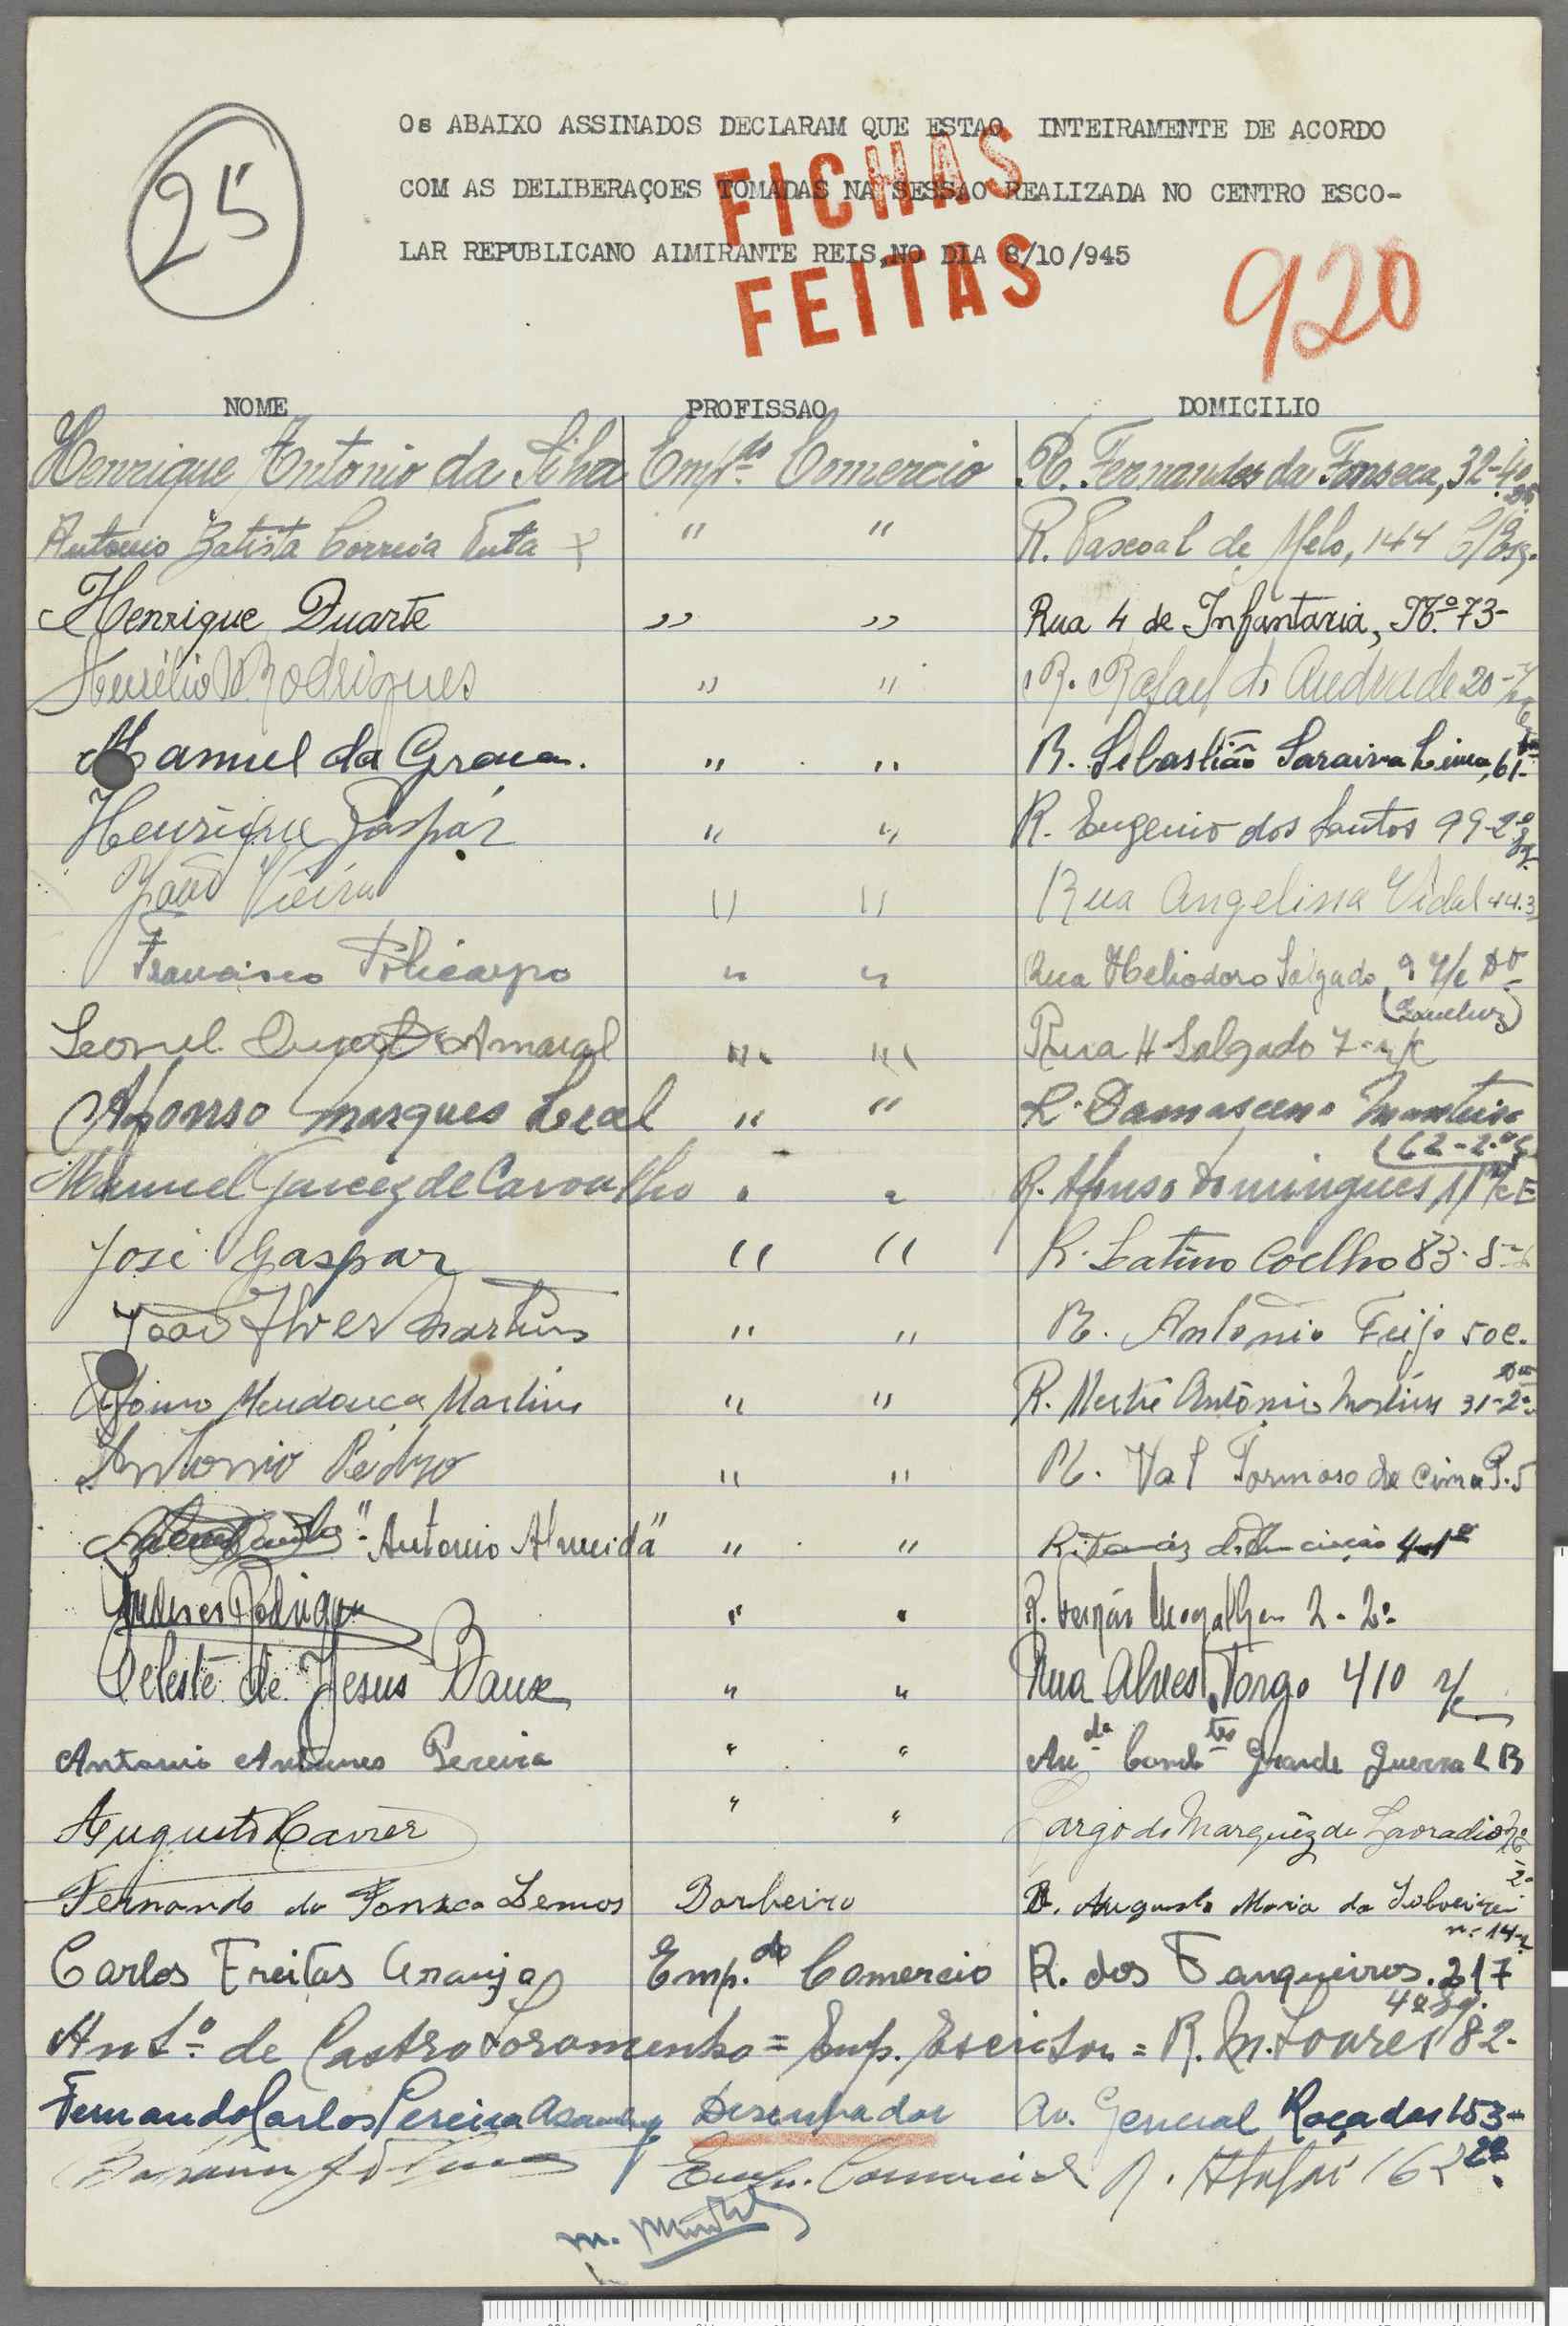 25
Os ABAIXO ASSINADOS DECLARAM QUE ESTAO INTEIRAMENTE DE ACORDO
COM AS DELIBERAÇOES TOMADAS NA SESSAO REALIZADA NO CENTRO ESCO-
LAR REPUBLICANO AIMIRANTE REIS,NO DIA 8/10/945
FICHAS
FEITAS
920
NOME PROFISSAO DOMICILIO
Henrique Antonio da Silva Emp.do Comercio R. Fernandes da Fonseca, 32-4º
Antonio Batista Correia Tuta " " R. Pascoal de Melo, 144
Henrique Duarte " " Rua 4 de Infantaria, Nº 73-
Aurélio Rodrigues " " R. Rafael de Andrade 20
Manuel da Graca. " " R. Sebastião Saraiva Lima, 61-
Henrique Gaspar " " R. Eugenio dos Santos 99-2º
João Vieira " " Rua Angelina Vidal 44.3
Francisco Policarpo " " Rua Heliodoro Salgado 9 r/c Dto
Leonel Amaral " " Rua H Salgado 7-r/c
Afonso Marques Leal " " R. Damasceno Monteiro
62-2.º
Manuel Garcez de Carvalho " " R. Afonso Domingues 11 r/c E
José Gaspar " " R. Latino Coelho 83
João Alves Martins " " R. Antonio Feijo 50 c.
Mendonca Martins " " R. Mestre António Martins 31-2º
Antonio Pedro " " R. Val Formoso de Cima
"Antonio Almeida" " " 4-1º
Rodrigues " " R. Fernão Magalhães 2-2º
Celeste de Jesus " " Rua Alves Torgo 410 r/c
Antonio Antunes Pereira " " Avda Combtes Grande Guerra
Augusto Xavier " " Largo do Marquêz de Lavradio
Fernando da Fonseca Lemos Barbeiro R. Augusto Maria da
n.º 14
Carlos Freitas Araujo Emp.do Comercio R. dos Fanqueiros. 217
4º Eq.
Antº de Castro Soromenho = Emp. Escritor = R. M. Soares 82-
Fernando Carlos Pereira Desenhador Av. General Roçadas 153-
Emp. Comercial R. 162